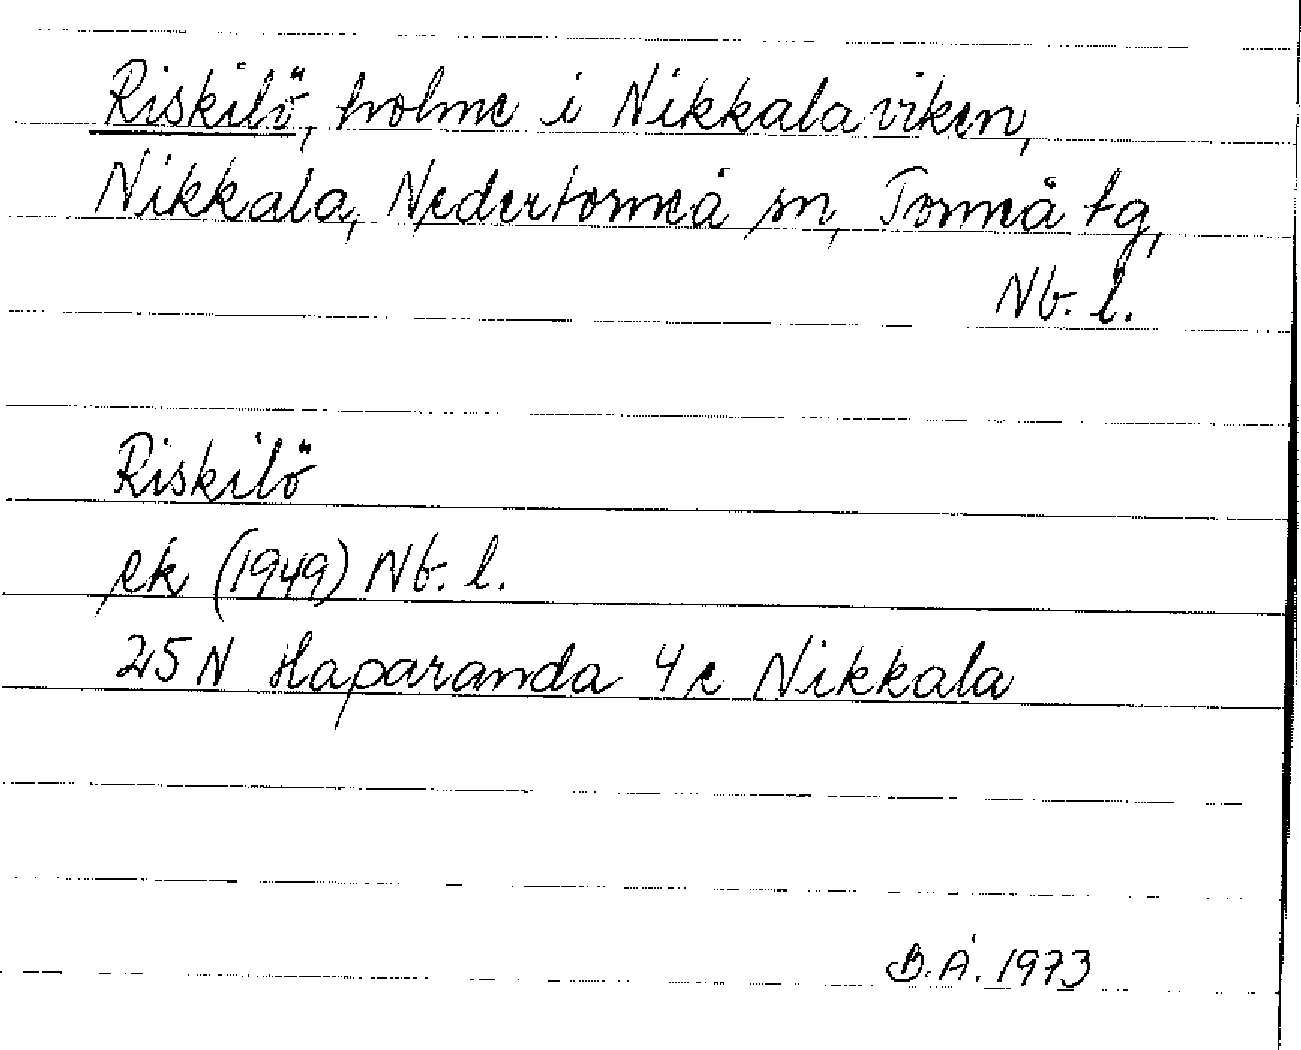 Riskilö, holme i Nikkalaviken,
Nikkala, Nedertorneå sn, Torneå tg,
Nb. l.
Riskilö
ek (1949) Nb. l.
25 N Haparanda 4 e Nikkala
B.Å. 1973